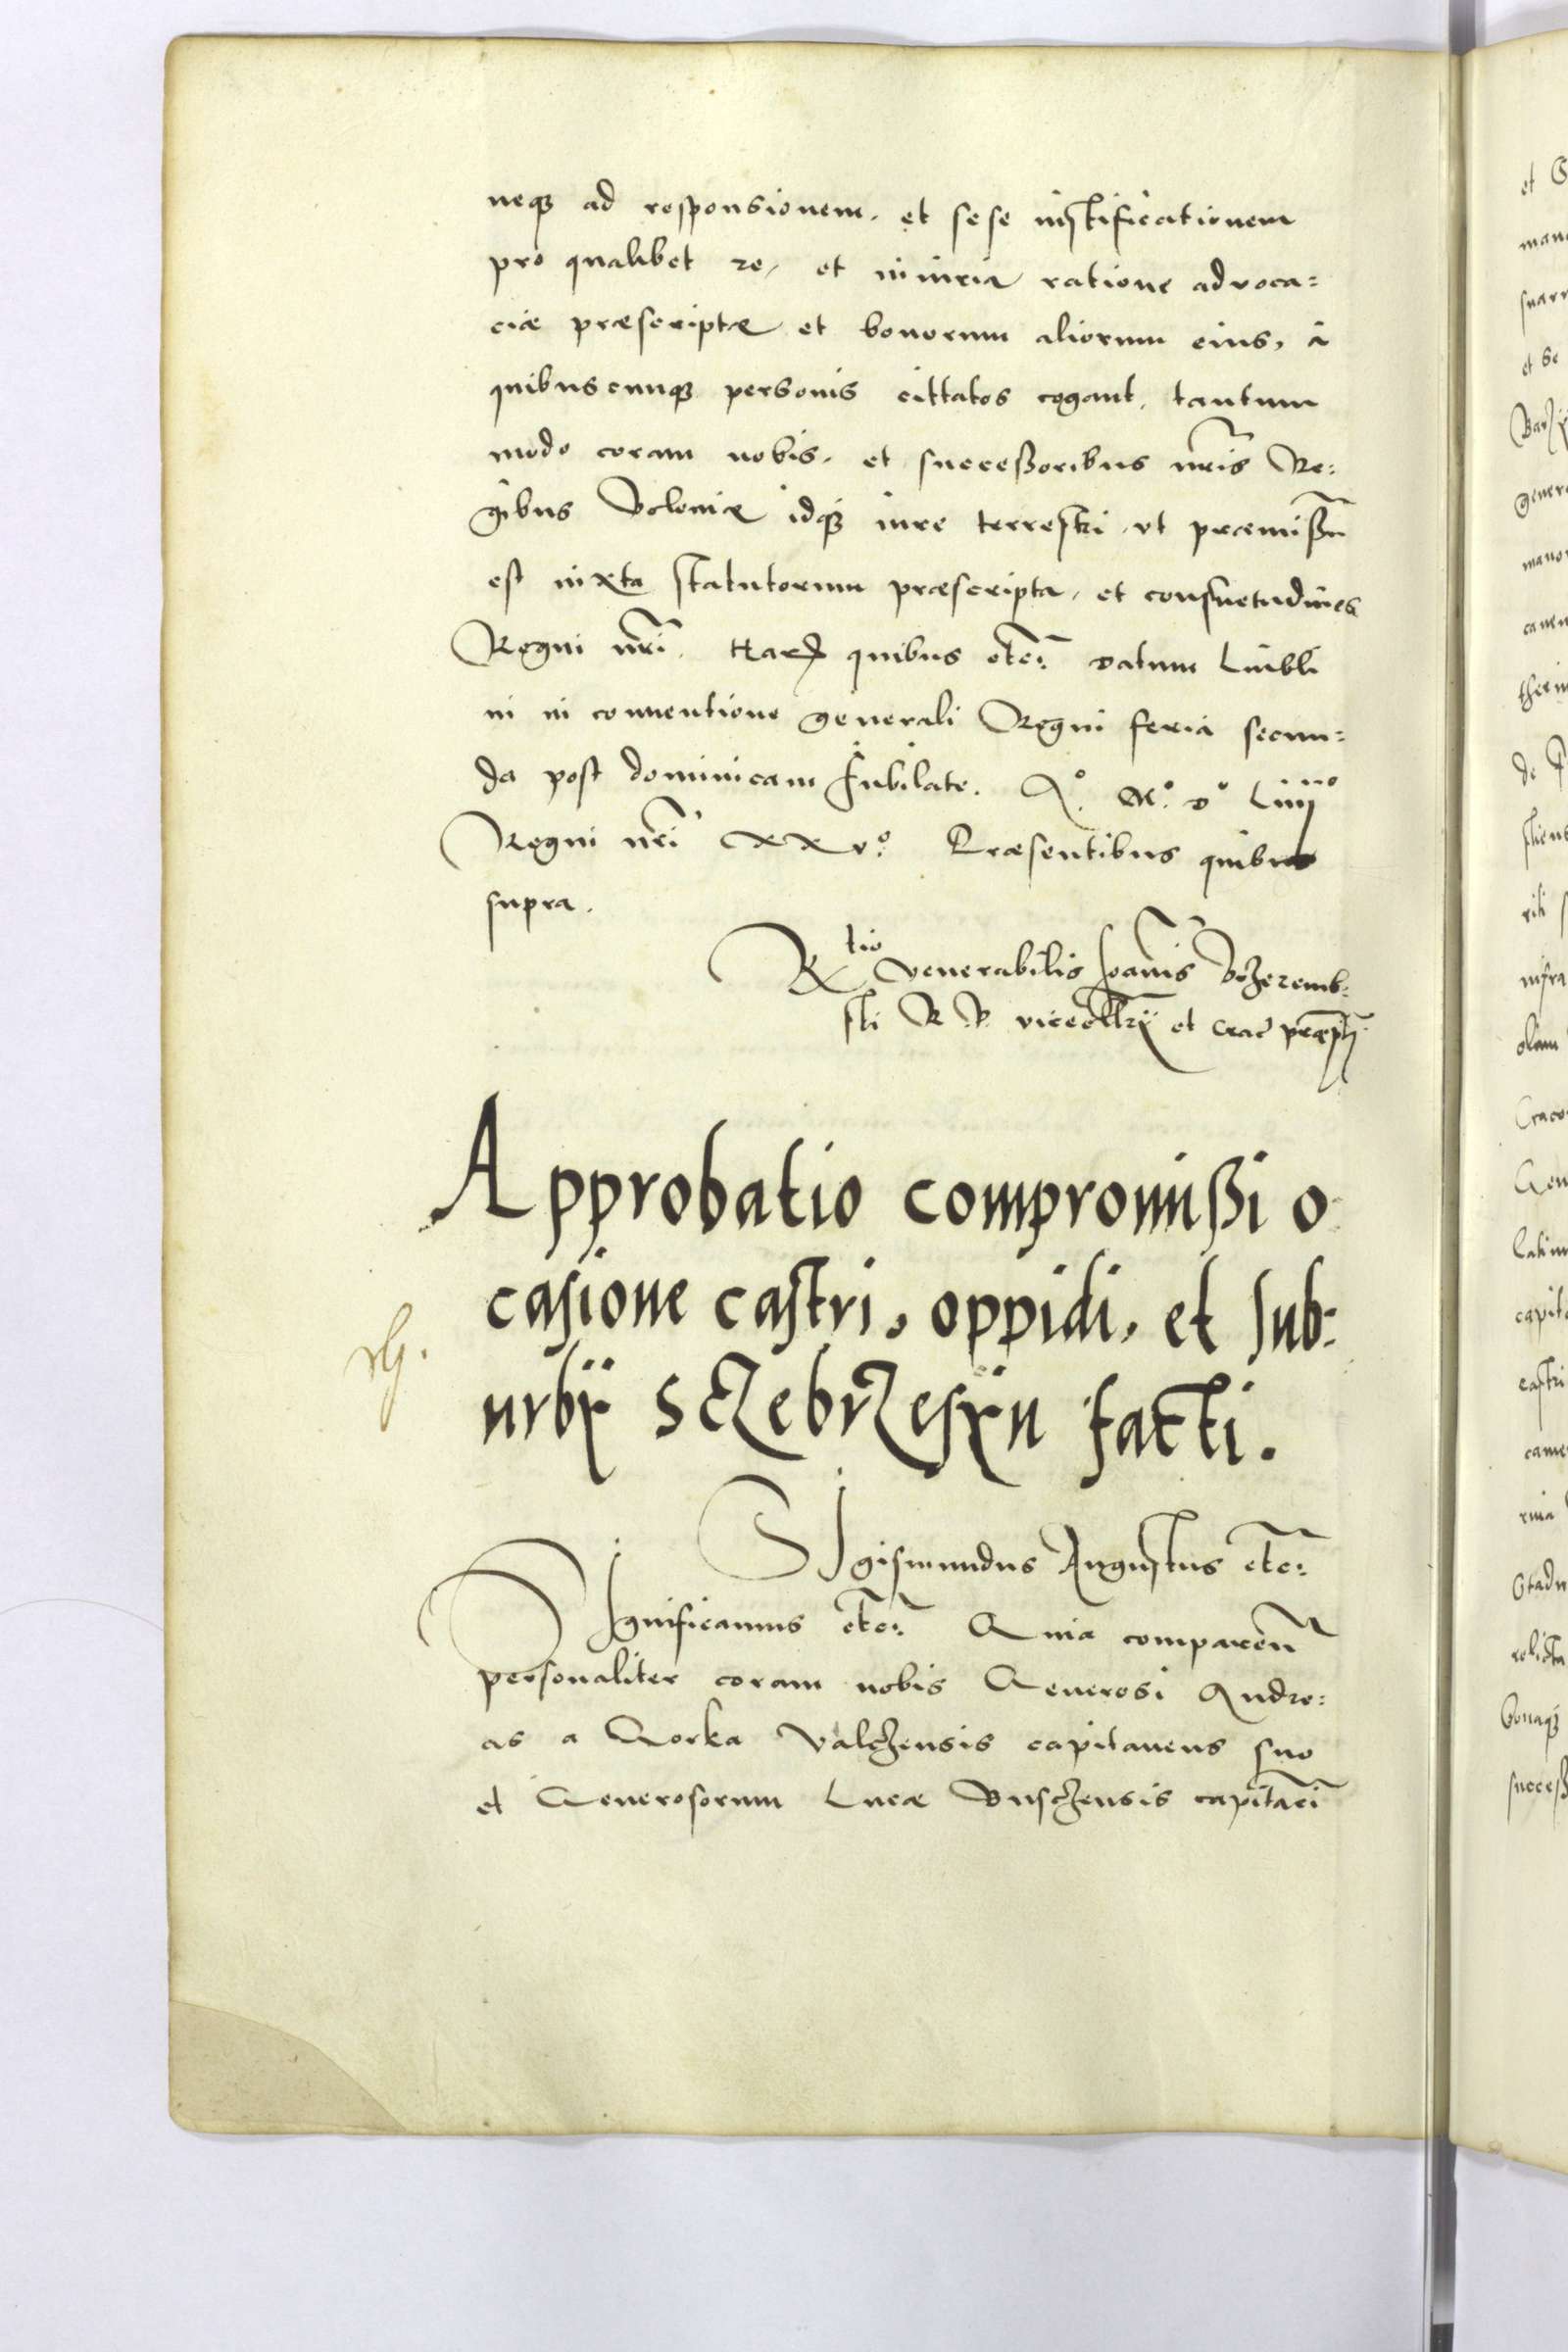 neq₃ ad responsionem, et sese iustificationem
pro qualibet re, et iniuria ratione advoca=
ciæ præscriptæ et bonorum aliorum eius, à
quibuscunq₃ personis cittatos cogant, tantum
modo coram nobis, et succeßoribus nr̃is Re=
gibus Poloniæ idq₃ iure terrestri, vt præmißũ
est iuxta statutorum præscripta, et consuetudines
Regni nr̃i. Harꝝ quibus etc̃: datum Lubli
ni in conventione generali Regni feria secun=
da post dominicam Jubilate. Aº. Mº. Dº Liiijº
Regni nr̃i XXvº. Præsentibus quibus
supra.
Rtio venerabilis Joañis Przeremb=
ski R. P. vicecllr̃ij et Crac̃ præpti
Approbatio compromißi o=
casione castri, oppidi, et sub=
urbij Sczebrzesÿn facti.
Sigismundus Augustus etc̃:
Significamus etc̃: Quia compareñ
personaliter coram nobis Generosi Andre=
as a Gorka Valczensis capitaneus suo
et Generosorum Lucæ Busczensis capitanei
et
man
et se
gener
mano
de
infra
olim
Craco
capit
castri
came
relicta
bonaq₃
succeß